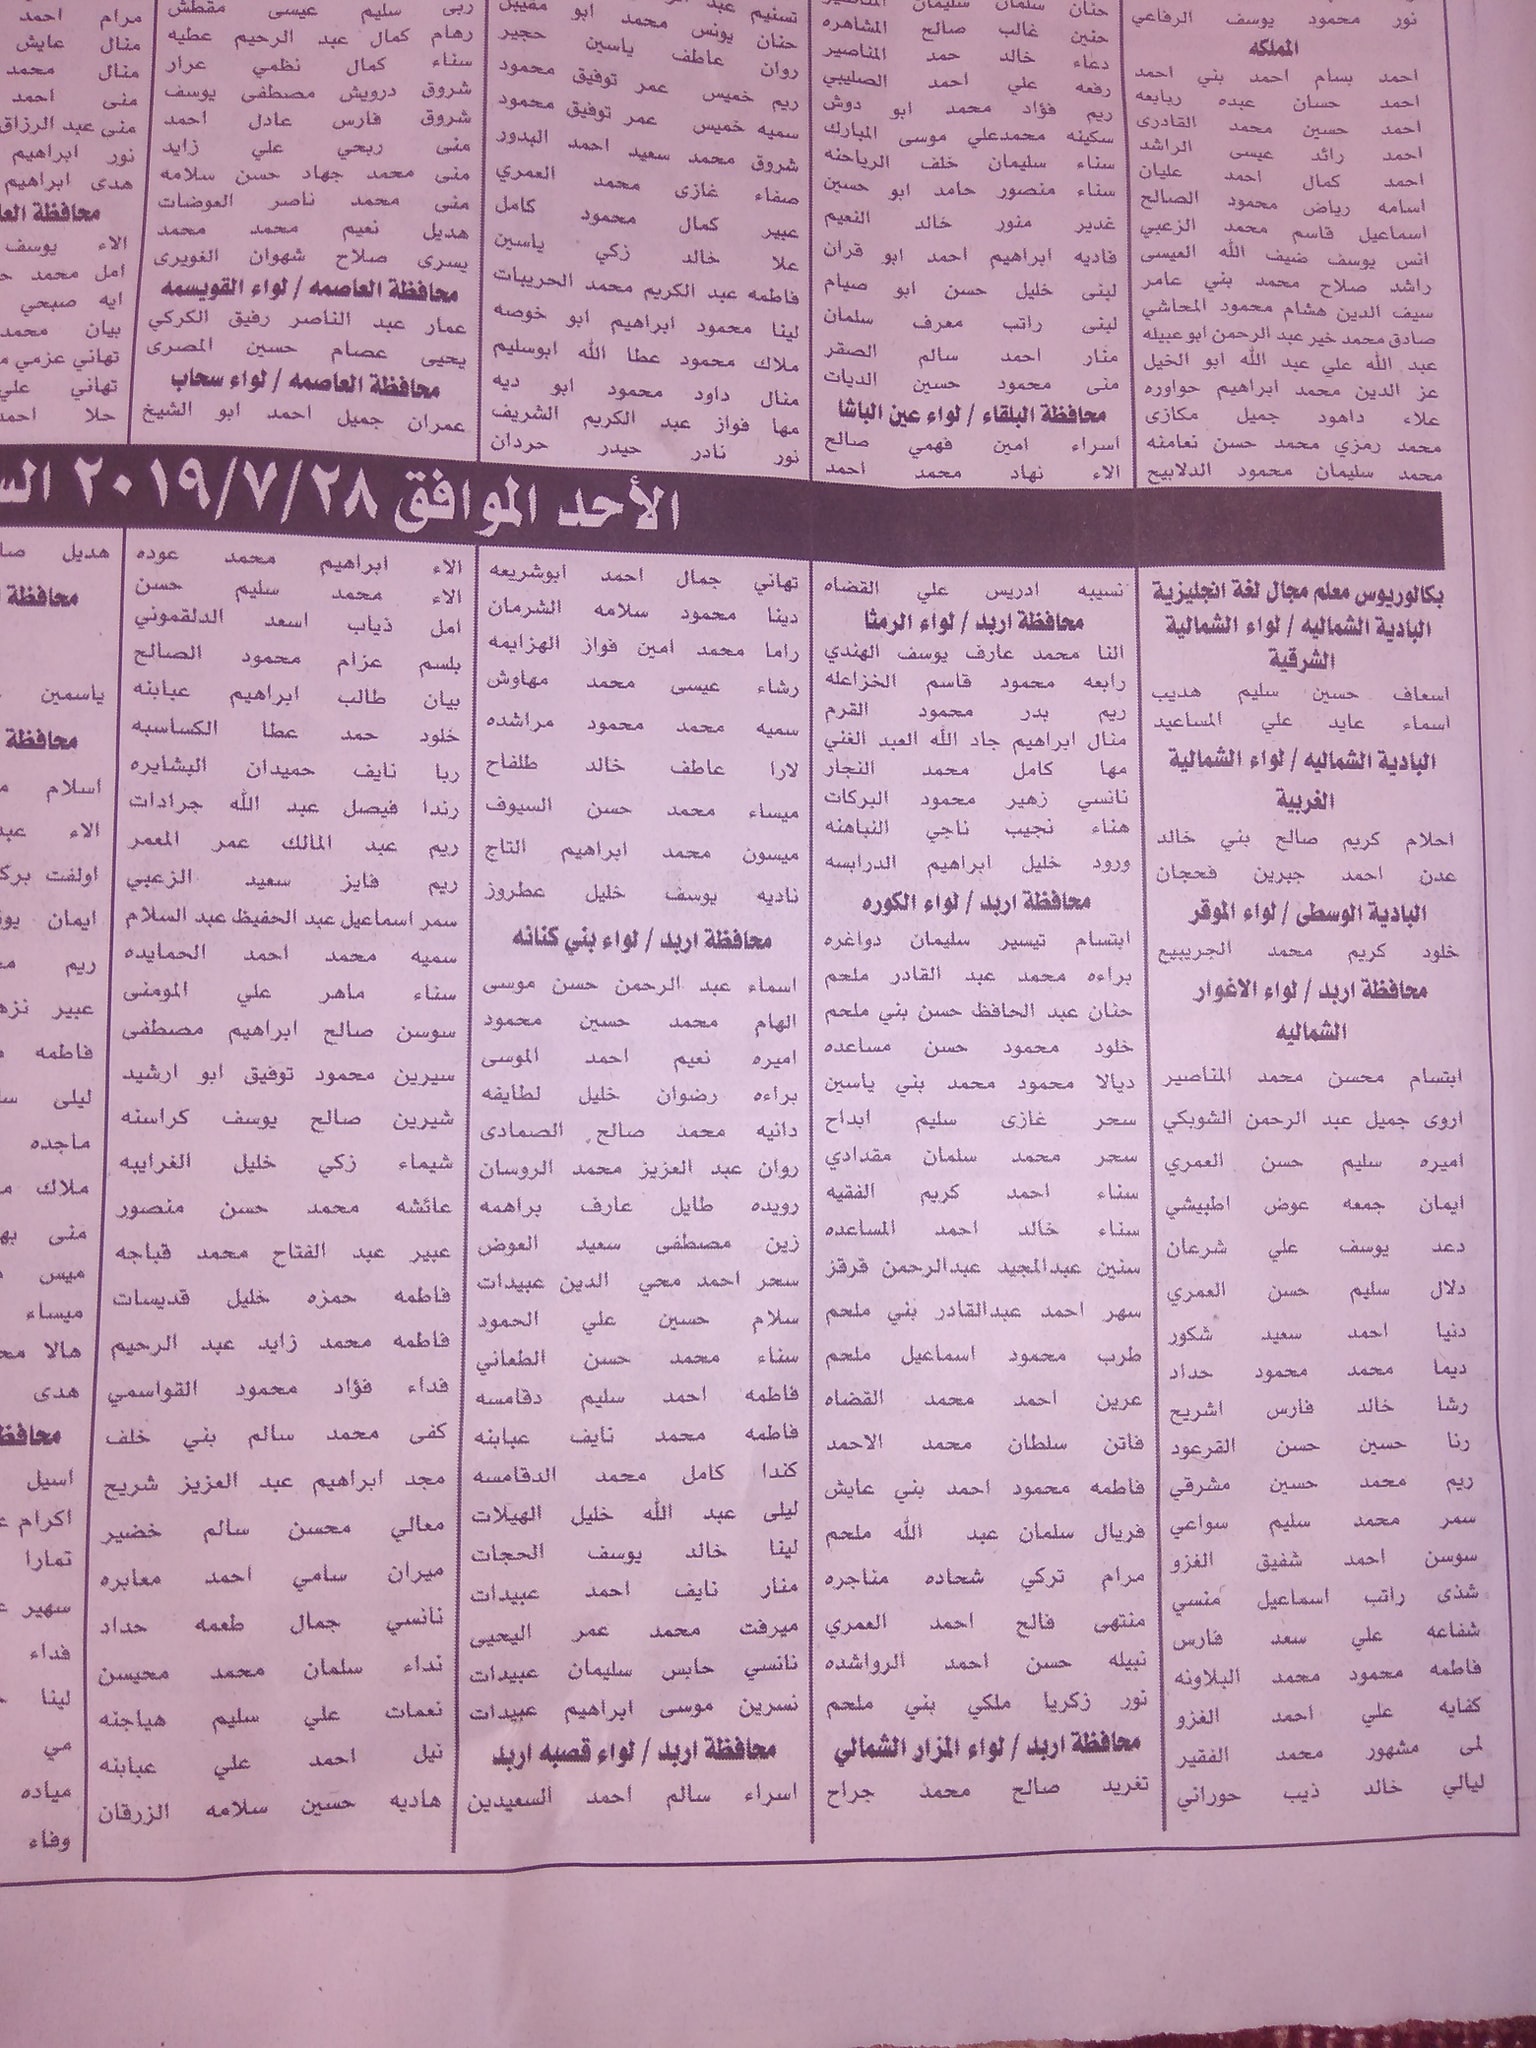 نور محمود يوسف الرفاعي
المملكه
احمد بسام احمد بني احمد
احمد حسان عبده ربابعه
احمد حسين محمد القادرى
احمد رائد عيسى الراشد
احمد كمال احمد عليان
اسامه رياض محمود الصالح
اسماعيل قاسم محمد الزعبي
انس يوسف ضيف الله العيسى
راشد صلاح محمد بني عامر
سيف الدين هشام محمود المحاشي
صادق محمد خير عبد الرحمن ابو عبيله
عبد الله علي عبد الله ابو الخيل
عز الدين محمد ابراهيم حواوره
علاء داهود جميل مكازى
محمد رمزي محمد حسن نعامنه
محمد سليمان محمود الدلابيح
حنان سلمان سليمان المناصير
حنين غالب صالح المشاهره
دعاء خالد حمد المناصير
رفعه علي احمد الصليبي
ريم فؤاد محمد ابو دوش
سكينه محمدعلي موسى المبارك
سناء سليمان خلف الرياحنه
سناء منصور حامد ابو حسين
غدير منور خالد النعيم
فاديه ابراهيم احمد ابو قران
لبنى خليل حسن ابو صيام
لبنى راتب معرف سلمان
منار احمد سالم الصقر
منى محمود حسين الديات
محافظة البلقاء / لواء عين الباشا
اسراء امين فهمي صالح
الاء نهاد محمد احمد
حنان يونس محمد ابو مقيبل
روان عاطف ياسين حجير
ريم خميس عمر توفيق محمود
سميه خميس عمر توفيق محمود
شروق محمد سعيد احمد البدور
صفاء غازى محمد العمري
عبير كمال محمود كامل
علا خالد زكي ياسين
فاطمه عبد الكريم محمد الحربيات
لينا محمود ابراهيم ابو خوصه
ملاك محمود عطا الله ابوسليم
منال داود محمود ابو ديه
مها فواز عبد الكريم الشريف
نور نادر حيدر حردان
ربى سليم عيسى مقطش
رهام كمال عبد الرحيم عطيه
سناء كمال نظمي عرار
شروق درويش مصطفى يوسف
شروق فارس عادل احمد
منى ربحي علي زايد
منى محمد جهاد حسن سلامه
منى محمد ناصر العوضات
هديل نعيم محمد محمد
يسرى صلاح شهوان الغويرى
محافظة العاصمه / لواء القويسمه
عمار عبد الناصر رفيق الكركي
يحيى عصام حسين المصرى
محافظة العاصمه / لواء سحاب
عمران جميل احمد ابو الشيخ
مرام احمد
منال عايش
منال محمد
منى احمد
منى عبد الرزاق
نور ابراهيم
هدى ابراهيم
محافظة
الاء يوسف
امل محمد
ايه صبحي
بيان محمد
تهاني عزمي
تهاني علي
حلا احمد
الأحد الموافق ٢٠١٩/٧/٢٨
بكالوريوس معلم مجال لغة انجليزية
البادية الشماليه / لواء الشمالية
الشرقية
اسعاف حسين سليم هديب
اسماء عايد علي المساعيد
البادية الشماليه / لواء الشمالية
الغربية
احلام كريم صالح بني خالد
عدن احمد جبرين فحجان
البادية الوسطى / لواء الموقر
خلود كريم محمد الجريبيع
محافظة اربد / لواء الاغوار
الشماليه
ابتسام محسن محمد المناصير
اروى جميل عبد الرحمن الشوبكي
اميره سليم حسن العمري
ايمان جمعه عوض اطبيشي
دعد يوسف علي شرعان
دلال سليم حسن العمري
دنيا احمد سعيد شكور
ديما محمد محمود حداد
رشا خالد فارس اشريح
رنا حسين حسن القرعود
ريم محمد حسين مشرقي
سمر محمد سليم سواعي
سوسن احمد شفيق الغزو
شذى راتب اسماعيل منسي
شفاعه علي سعد فارس
فاطمه محمود محمد البلاونه
كفايه علي احمد الغزو
لمى مشهور محمد الفقير
ليالي خالد ذيب حوراني
نسيبه ادريس علي القضاه
محافظة اربد / لواء الرمثا
النا محمد عارف يوسف الهندي
رابعه محمود قاسم الخزاعله
ريم بدر محمود القرم
منال ابراهيم جاد الله العبد الغني
مها كامل محمد النجار
نانسي زهير محمود البركات
هناء نجيب ناجي النباهنه
ورود خليل ابراهيم الدرابسه
محافظة اربد / لواء الكوره
ابتسام تيسير سليمان دواغره
براءه محمد عبد القادر ملحم
حنان عبد الحافظ حسن بني ملحم
خلود محمود حسن مساعده
ديالا محمود محمد بني ياسين
سحر غازى سليم ابداح
سحر محمد سلمان مقدادي
سناء احمد كريم الفقيه
سناء خالد احمد المساعده
سنين عبدالمجيد عبدالرحمن قرقز
سهر احمد عبدالقادر بني ملحم
طرب محمود اسماعيل ملحم
عرين احمد محمد القضاه
فاتن سلطان محمد الاحمد
فاطمه محمود احمد بني عايش
فريال سلمان عبد الله ملحم
مرام تركي شحاده مناجره
منتهى فالح احمد العمري
نبيله حسن احمد الرواشده
نور زكريا ملكي بني ملحم
محافظة اربد / لواء المزار الشمالي
تغريد صالح محمد جراح
تهاني جمال احمد ابوشريعه
دينا محمود سلامه الشرمان
راما محمد امين فواز الهزايمه
رشاء عيسى محمد مهاوش
سميه محمد محمود مراشده
لارا عاطف خالد طلفاح
ميساء محمد حسن السيوف
ميسون محمد ابراهيم التاج
ناديه يوسف خليل عطروز
محافظة اربد / لواء بني كنانه
اسماء عبد الرحمن حسن موسى
الهام محمد حسين محمود
اميره نعيم احمد الموسى
براءه رضوان خليل لطايفه
دانيه محمد صالح الصمادى
روان عبد العزيز محمد الروسان
رويده طايل عارف براهمه
زين مصطفى سعيد العوض
سحر احمد محي الدين عبيدات
سلام حسين علي الحمود
سناء محمد حسن الطعاني
فاطمه احمد سليم دقامسه
فاطمه محمد نايف عبابنه
كندا كامل محمد الدقامسه
ليلى عبد الله خليل الهيلات
لينا خالد يوسف الحجات
منار نايف احمد عبيدات
ميرفت محمد عمر اليحيى
نانسي حابس سليمان عبيدات
نسرين موسى ابراهيم عبيدات
محافظة اربد / لواء قصبه اربد
اسراء سالم احمد السعيدين
الاء ابراهيم محمد عوده
الاء محمد سليم حسن
امل ذياب اسعد الدلقموني
بلسم عزام محمود الصالح
بيان طالب ابراهيم عبابنه
خلود حمد عطا الكساسبه
ربا نايف حميدان البشايره
رندا فيصل عبد الله جرادات
ريم عبد المالك عمر المعمر
ريم فايز سعيد الزعبي
سمر اسماعيل عبد الحفيظ عبد السلام
سميه محمد احمد الحمايده
سناء ماهر علي المومنى
سوسن صالح ابراهيم مصطفى
سيرين محمود توفيق ابو ارشيد
شيرين صالح يوسف كراسنه
شيماء زكي خليل الغرايبه
عائشه محمد حسن منصور
عبير عبد الفتاح محمد قباجه
فاطمه حمزه خليل قديسات
فاطمه محمد زايد عبد الرحيم
فداء فؤاد محمود القواسمي
كفى محمد سالم بني خلف
مجد ابراهيم عبد العزيز شريح
معالي محسن سالم خضير
ميران سامي احمد معابره
نانسي جمال طعمه حداد
نداء سلمان محمد محيسن
نعمات علي سليم هياجنه
نيل احمد علي عبابنه
هاديه حسين سلامه الزرقان
هديل
محافظة
ياسمين
محافظة
اسلام
الاء
اولفت
ايمان
ريم
عبير
فاطمه
ليلى
ماجده
ملاك
منى
ميس
ميساء
هالا
هدى
محافظة
اسيل
اكرام
تمارا
سهير
فداء
لينا
مي
مياده
وفاء